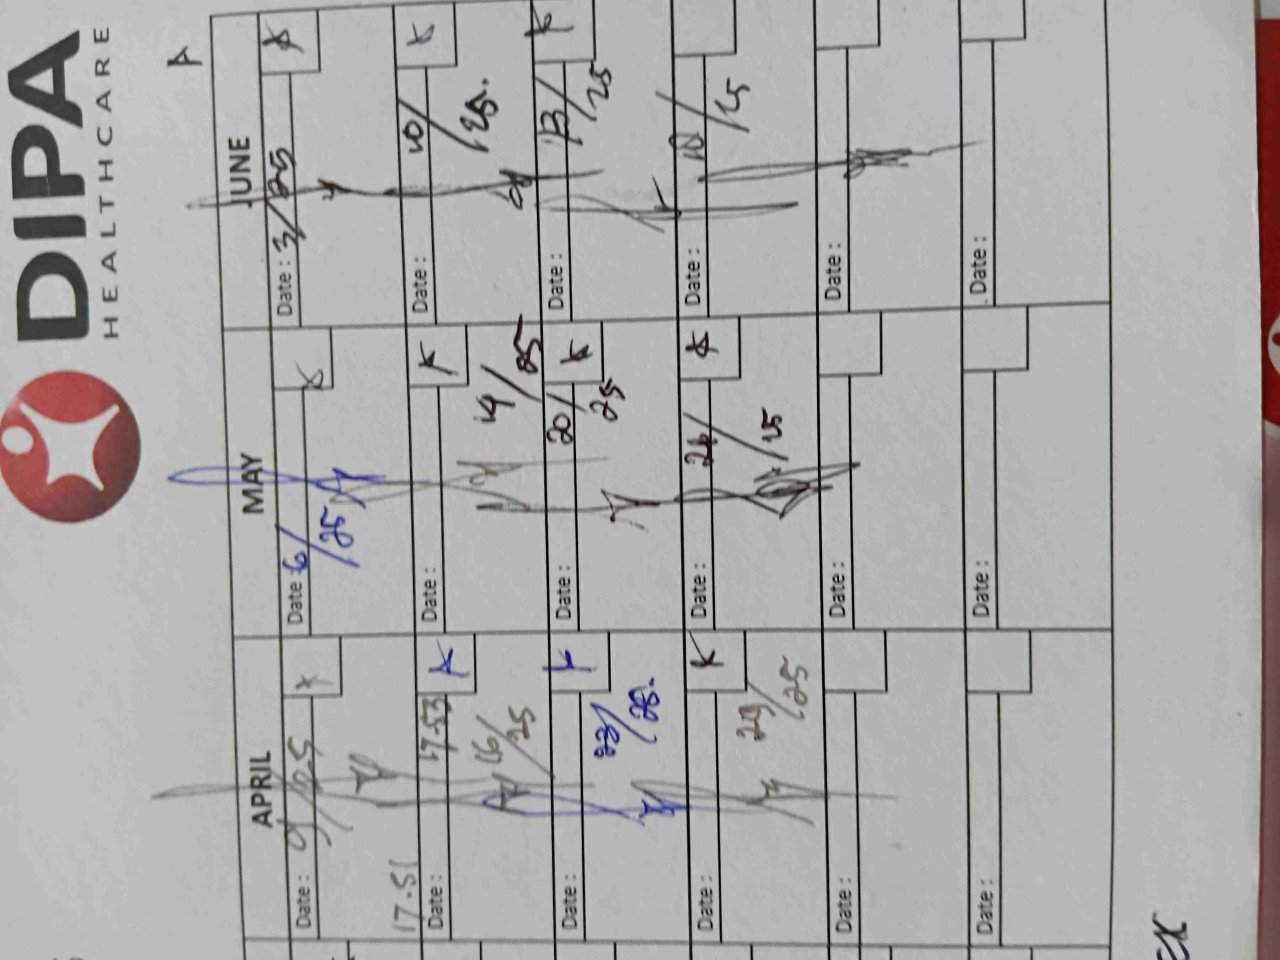 DIPA
HEALTHCARE
APRIL
MAY
JUNE
Date : 9/25
Date : 6/25
Date : 3/25
17.51
Date : 17.53
16/25
Date :
14/25
Date :
10/25.
Date :
23/25.
Date :
20/25
Date :
13/25
Date :
K
29/25
Date :
26/25
Date :
18/25
Date :
Date :
Date :
Date :
Date :
Date :